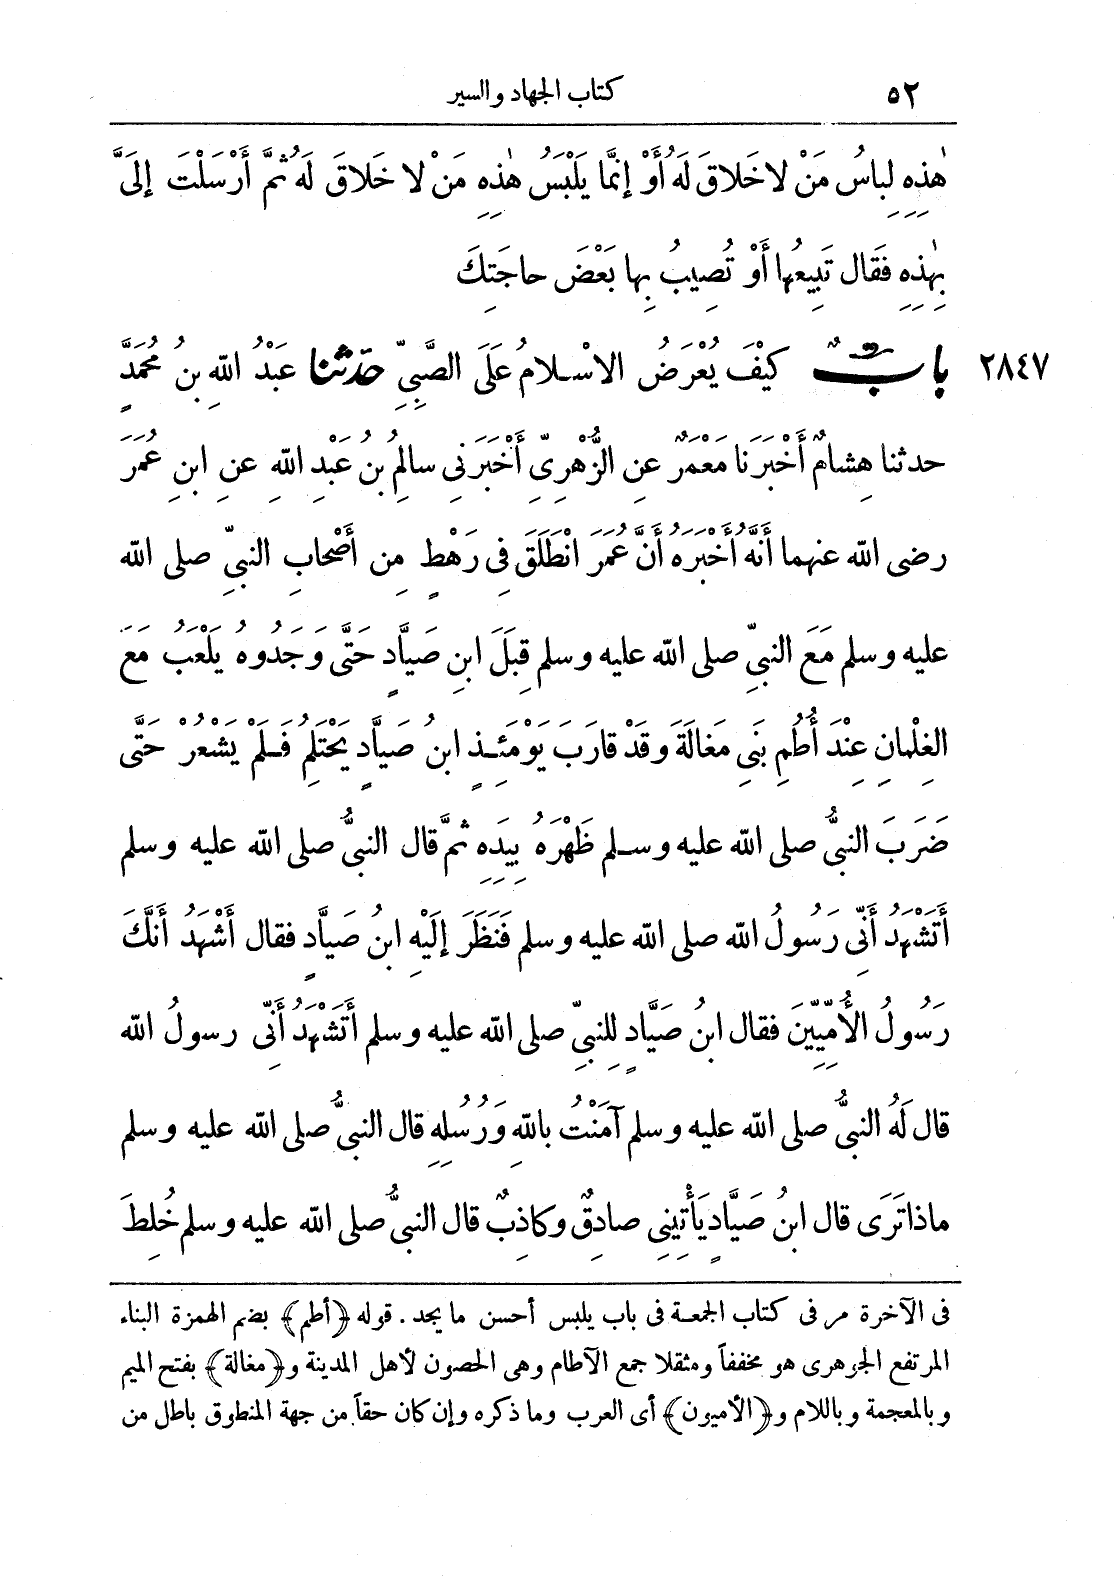 ٥٢ كتاب الجهاد والسير
هٰذِهِ لِباسُ مَنْ لا خَلاقَ لَهُ أَوْ إنَّما يَلْبَسُ هٰذِهِ مَنْ لا خَلاقَ لَهُ ثُمَّ أَرْسَلْتَ إلَىَّ
بِهٰذِهِ فَقَال تَبِيعُها أَوْ تُصِيبُ بِها بَعْضَ حاجَتِكَ
٢٨٤٧ بابٌ كَيْفَ يُعْرَضُ الاسْلامُ عَلَى الصَّبِىِّ حدّثنا عَبْدُ اللهِ بنُ مُحَمَّدٍ
حدثنا هِشامٌ أَخْبَرَنا مَعْمَرٌ عنِ الزُّهْرِىِّ أَخْبَرَنى سالِمُ بن عَبْدِ اللهِ عنِ ابنِ عُمَرَ
رضى الله عنهما أَنَّهُ أَخْبَرَهُ أَنَّ عُمَرَ انْطَلَقَ فِى رَهْطٍ مِن أَصْحابِ النبىِّ صلى الله
عليه وسلم مَعَ النبىِّ صلى الله عليه وسلم قِبَلَ ابنِ صَيَّادٍ حَتَّى وَجَدُوهُ يَلْعَبُ مَعَ
الغِلْمانِ عِنْدَ أُطُمِ بَنِى مَغالَةَ وقَدْ قارَبَ يَوْمَئِذٍ ابنُ صَيَّادٍ يَحْتَلِمُ فَلَمْ يَشْعُرْ حَتَّى
ضَرَبَ النبىُّ صلى الله عليه وسلم ظَهْرَهُ بِيَدِهِ ثمَّ قال النبىُّ صلى الله عليه وسلم
أَتَشْهَدُ أَنِّى رَسُولُ الله صلى الله عليه وسلم فَنَظَرَ إلَيْهِ ابنُ صَيَّادٍ فقال أَشْهَدُ أَنَّكَ
رَسُولُ الأُمِّيِّينَ فقال ابنُ صَيَّادٍ لِلنبىِّ صلى الله عليه وسلم أَتَشْهَدُ أَنِّى رسولُ الله
قال لَهُ النبىُّ صلى الله عليه وسلم آمَنْتُ بِاللهِ وَرُسُلِهِ قال النبىُّ صلى الله عليه وسلم
ماذا تَرَى قال ابنُ صَيَّادٍ يَأْتِينِى صادِقٌ وكاذِبٌ قال النبىُّ صلى الله عليه وسلم خُلِطَ
فى الآخرة مر فى كتاب الجمعة فى باب يلبس أحسن ما يجد . قوله ﴿أطم﴾ بضم الهمزة البناء
المرتفع الجوهرى هو مخففاً ومثقلا جمع الآطام وهى الحصون لأهل المدينة و﴿مغالة﴾ بفتح الميم
وبالمعجمة وباللام و﴿الأميون﴾ أى العرب وما ذكره وإن كان حقاً من جهة المنطوق باطل من